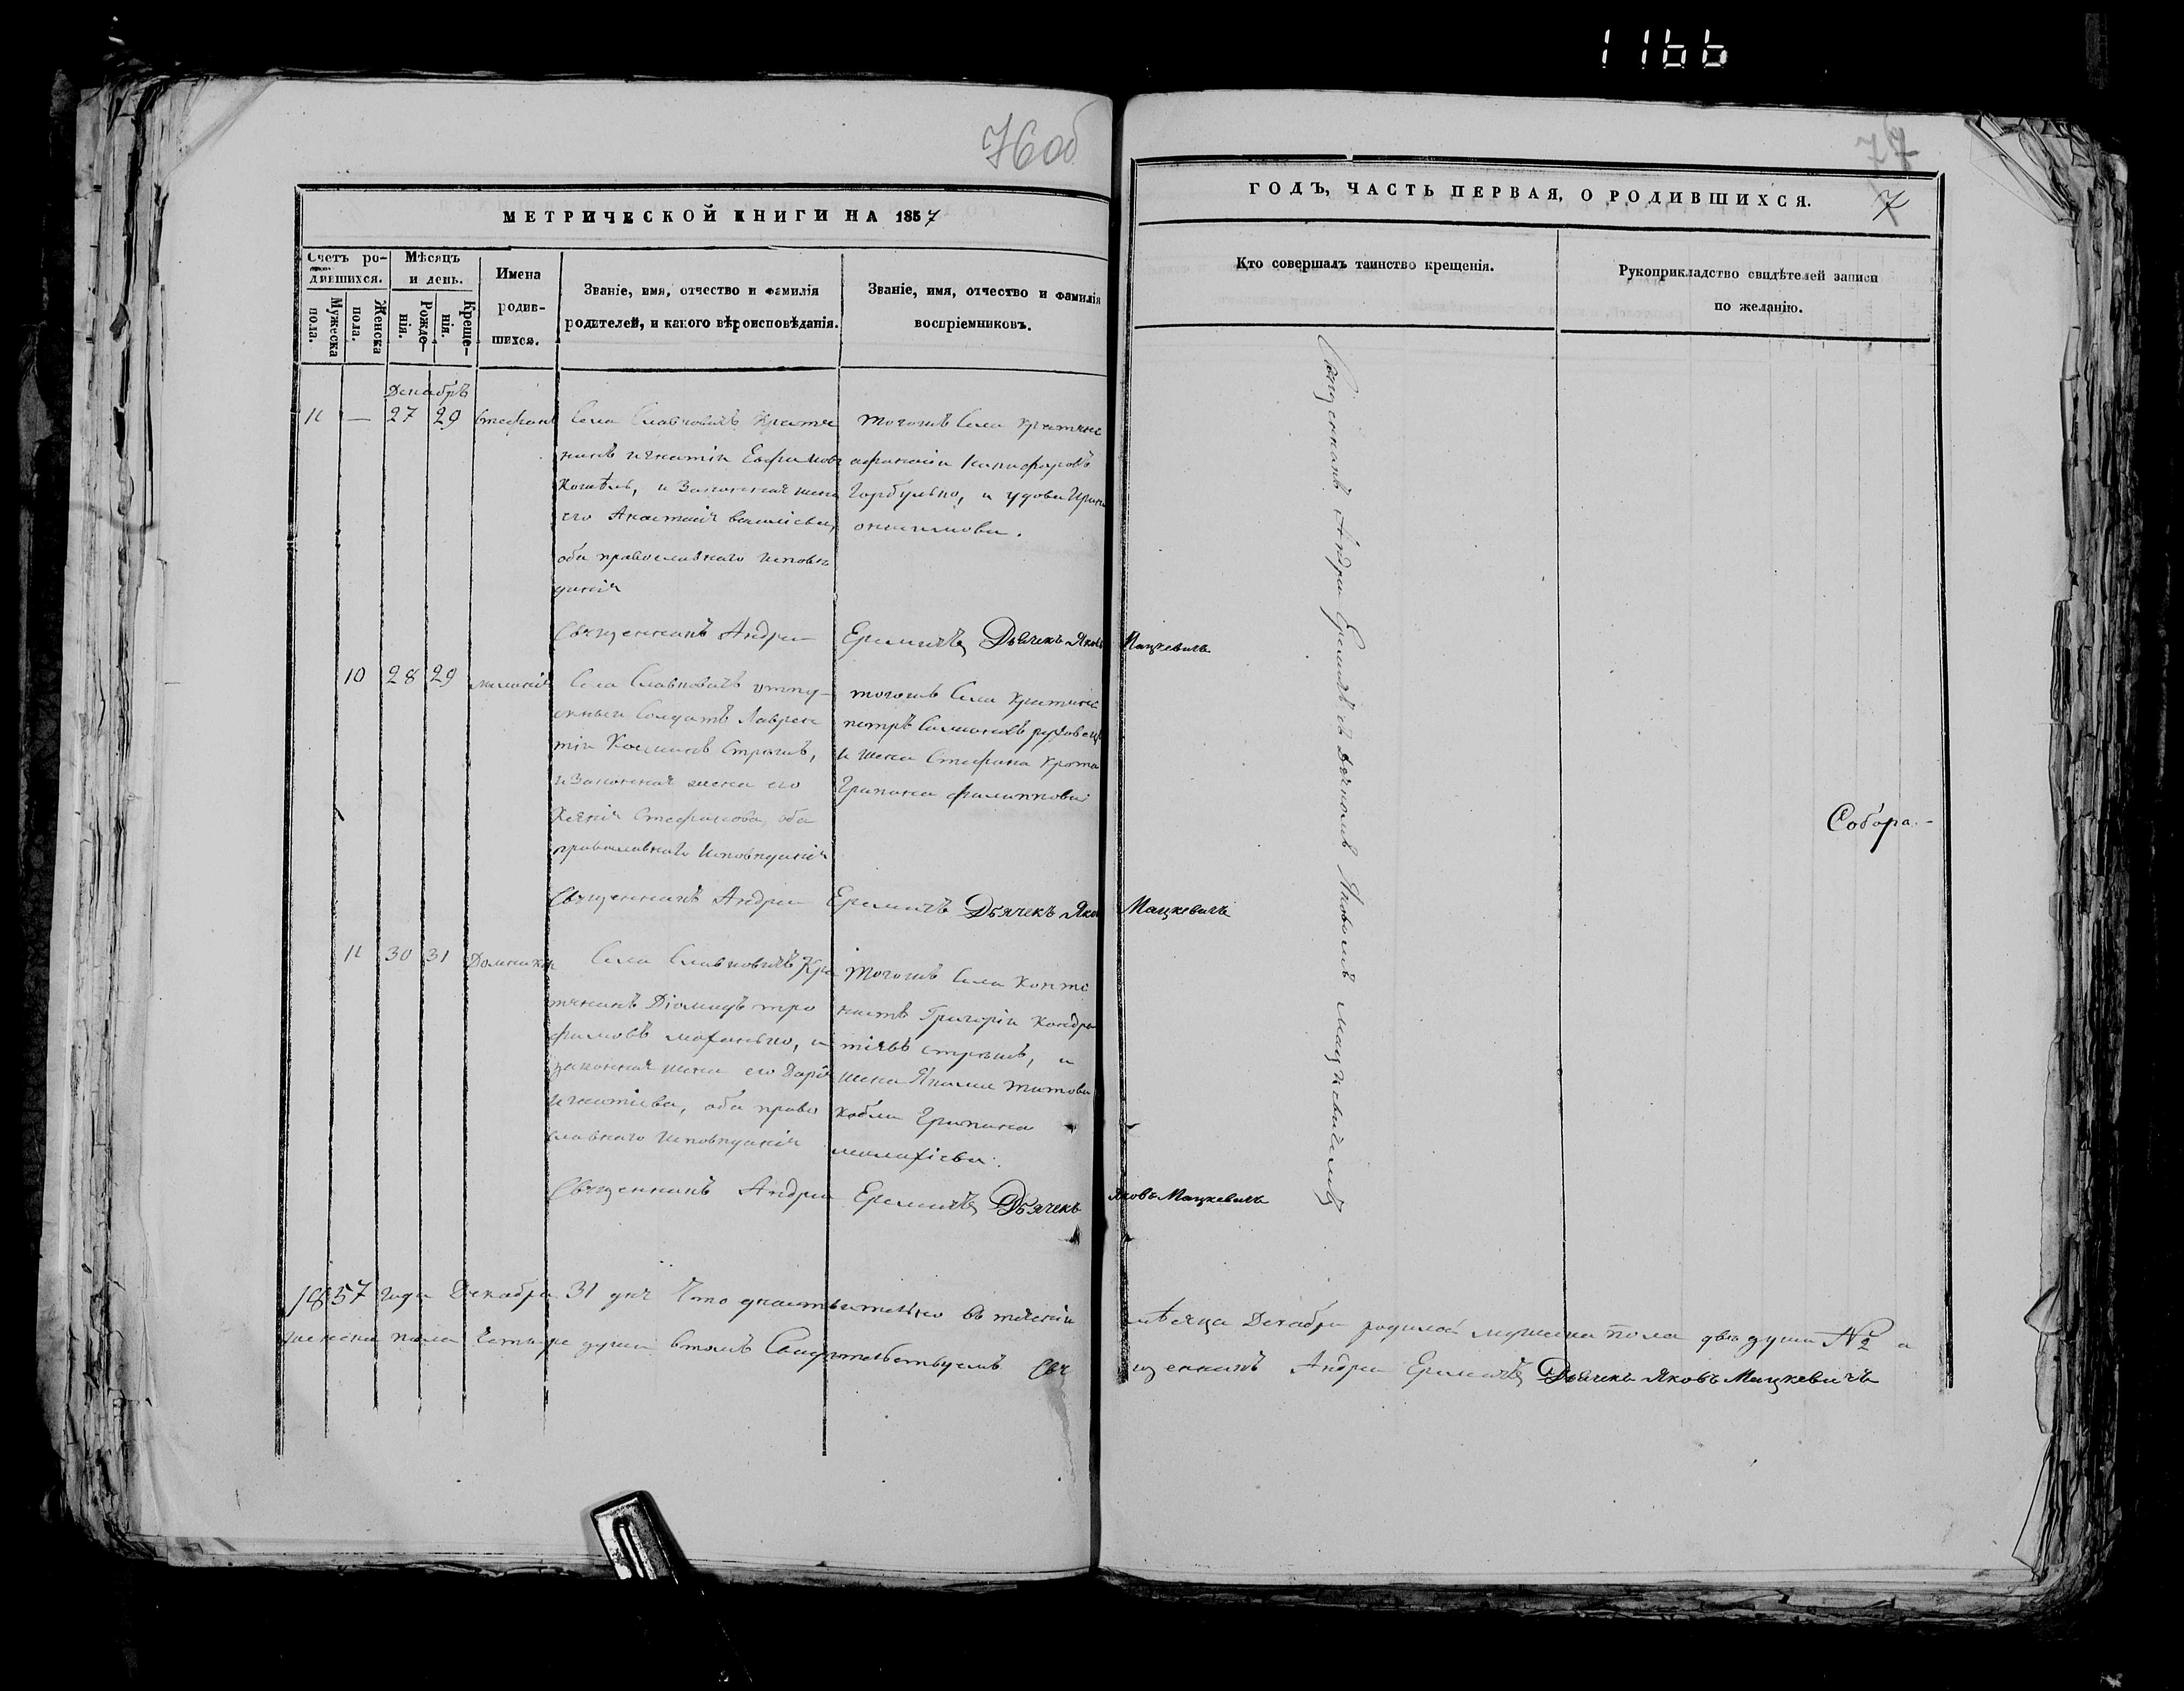 1166
76об
77
7
МЕТРИЧЕСКОЙ КНИГИ НА 1857
ГОДЪ, ЧАСТЬ ПЕРВАЯ, О РОДИВШИХСЯ.
Счетъ ро-
дившихся.
Мѣсяцъ
и день.
Мужеска
пола.
Женска
пола.
Рожде-
нія.
Креще-
нія.
Имена
родив-
шихся.
Званіе, имя, отчество и фамилія
родителей, и какого вѣроисповѣданія.
Званіе, имя, отчество и фамилія
воспріемниковъ.
Кто совершалъ таинство крещенія.
Рукоприкладство свидѣтелей записи
по желанію.
Декабрь
11 — 27 29 Стефанъ
Села Славковичь Крестя
нинъ игнатіи Евфимовъ
Кошѣль, и Законная жена
его Анастасія василіева,
оба православнаго исповѣ
данія
тогожъ Села Крестяне
Горбулько, и удова
онисимова.
Священникъ Андреи Еремичъ Дьячекъ Яковъ Мацкевичь
10 28 29 меланія
Села Славковичь отпу-
скныи Солдатъ Лаврен
тіи Стрыгъ,
и Законная жена его
Ксенія Стефанова, оба
православнаго исповѣданія
тогожъ Села Крестяне
петръ
и жена Стефана Крота
Грипина филиппова
Собора.-
Священникъ Андреи Еремичъ Дьячекъ Яковъ Мацкевичь
11 30 31 Домникія
Села Славковичь Кре
стянинъ Діомидъ тро
фимовъ моханько, и
законная жена его Дарія
игнатіева, оба право
славнаго исповѣданія
Тогожъ Села
Григоріи Кондра
тіевъ стрыгъ, и
жена титова
Грипина
малахіева.
Священникъ Андреи Еремичъ Дьячекъ Яковъ Мацкевичь
Священникъ Андреи Еремичъ съ дячкомъ Яковомъ мацкевичемъ
1857 года Декабря 31 дня Что дѣиствительно въ теченіи мѣсяца Декабря родилось мужеска пола двѣ души № 2 а
женска пола Четыре души втомъ Свидѣтельствуемъ Священникъ Андреи Еремичъ Дьячекъ Яковъ Мацкевичъ